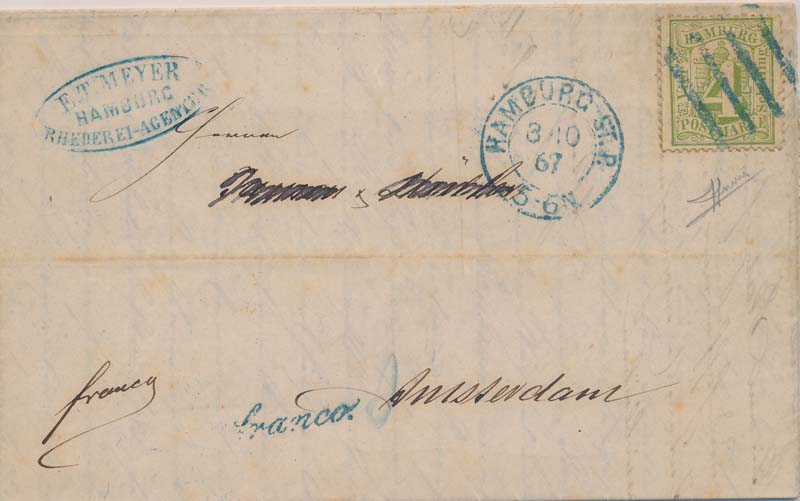 E.T. MEYER
HAMBURG
RHEDEREI-AGENTUR
HAMBURG ST.P.
3 10
67
5-6 N
HAMBURG
POSTMARKE
Herren
&
franco
franco.
Amsterdam